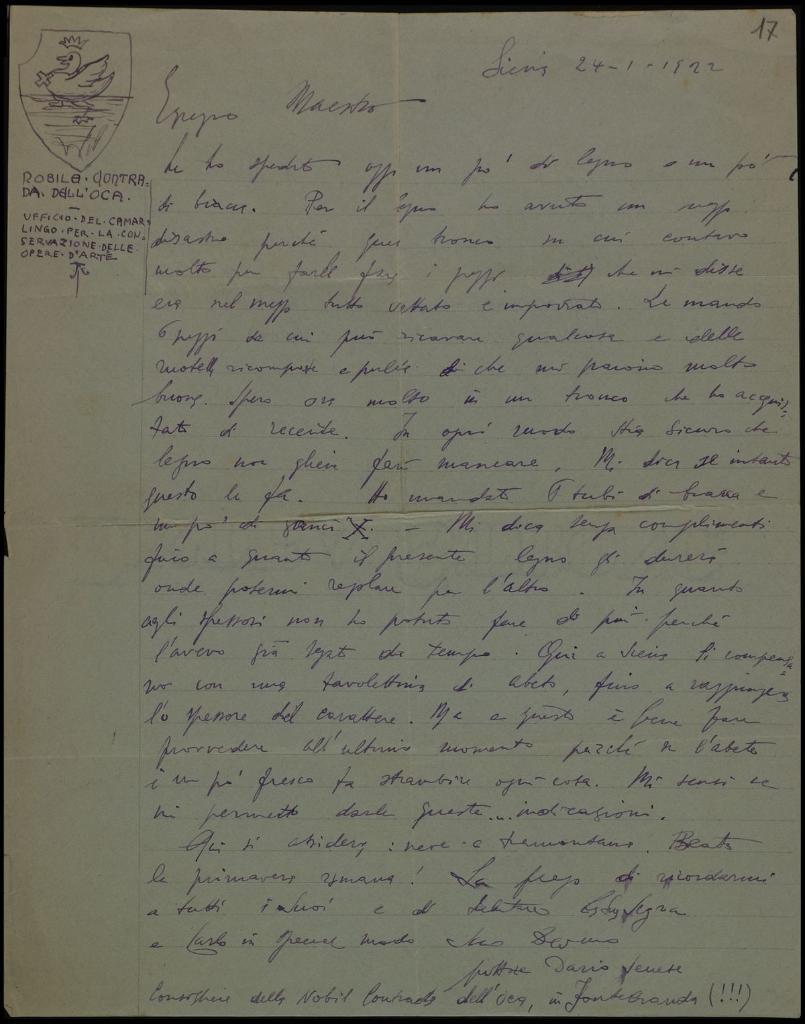 17
Siena 24-1-1922
NOBILE·CONTRA-
DA·DELL'OCA.
UFFICIO·DEL·CAMAR-
LINGO·PER·LA·CON-
SERVAZIONE·DELLE
OPERE·D'ARTE
Egregio Maestro
Le ho spedito oggi un po' di legno e un po'
di Per il legno ho avuto un mezzo
disastro perché quel tronco su cui contavo
molto per farle fare i pezzi che mi disse
era nel mezzo tutto e Le mando
6 pezzi da cui può ricavare qualcosa e delle
ricomposte e pulite che mi paiono molto
buone. Spero ora molto in un tronco che ho acquis-
tato di recente. In ogni modo stia sicuro che
legno non gliene farò mancare. Mi dica se intanto
questo le fa. Ho mandato tubi di e
un po' di X. – Mi dica senza complimenti
fino a quanto il presente legno gli durerà
onde potermi regolare per l'altro. In quanto
agli spessori non ho potuto fare di più perché
l'avevo già segato da tempo. Qui a Siena si compensa-
no con una tavolettina di abete, fino a raggiungere
lo spessore del carattere. Ma a questo è bene fare
provvedere all'ultimo momento perché se l'abete
è un po' fresco fa ogni cosa. Mi scusi se
mi permetto darle queste... indicazioni.
Qui si : neve e tramontana. Beata
la primavera romana! La prego di ricordarmi
a tutti i suoi e al
e Carlo in special modo Suo
Dario Senese
Consigliere della Nobil Contrada dell'Oca, in Fontebranda (!!!)